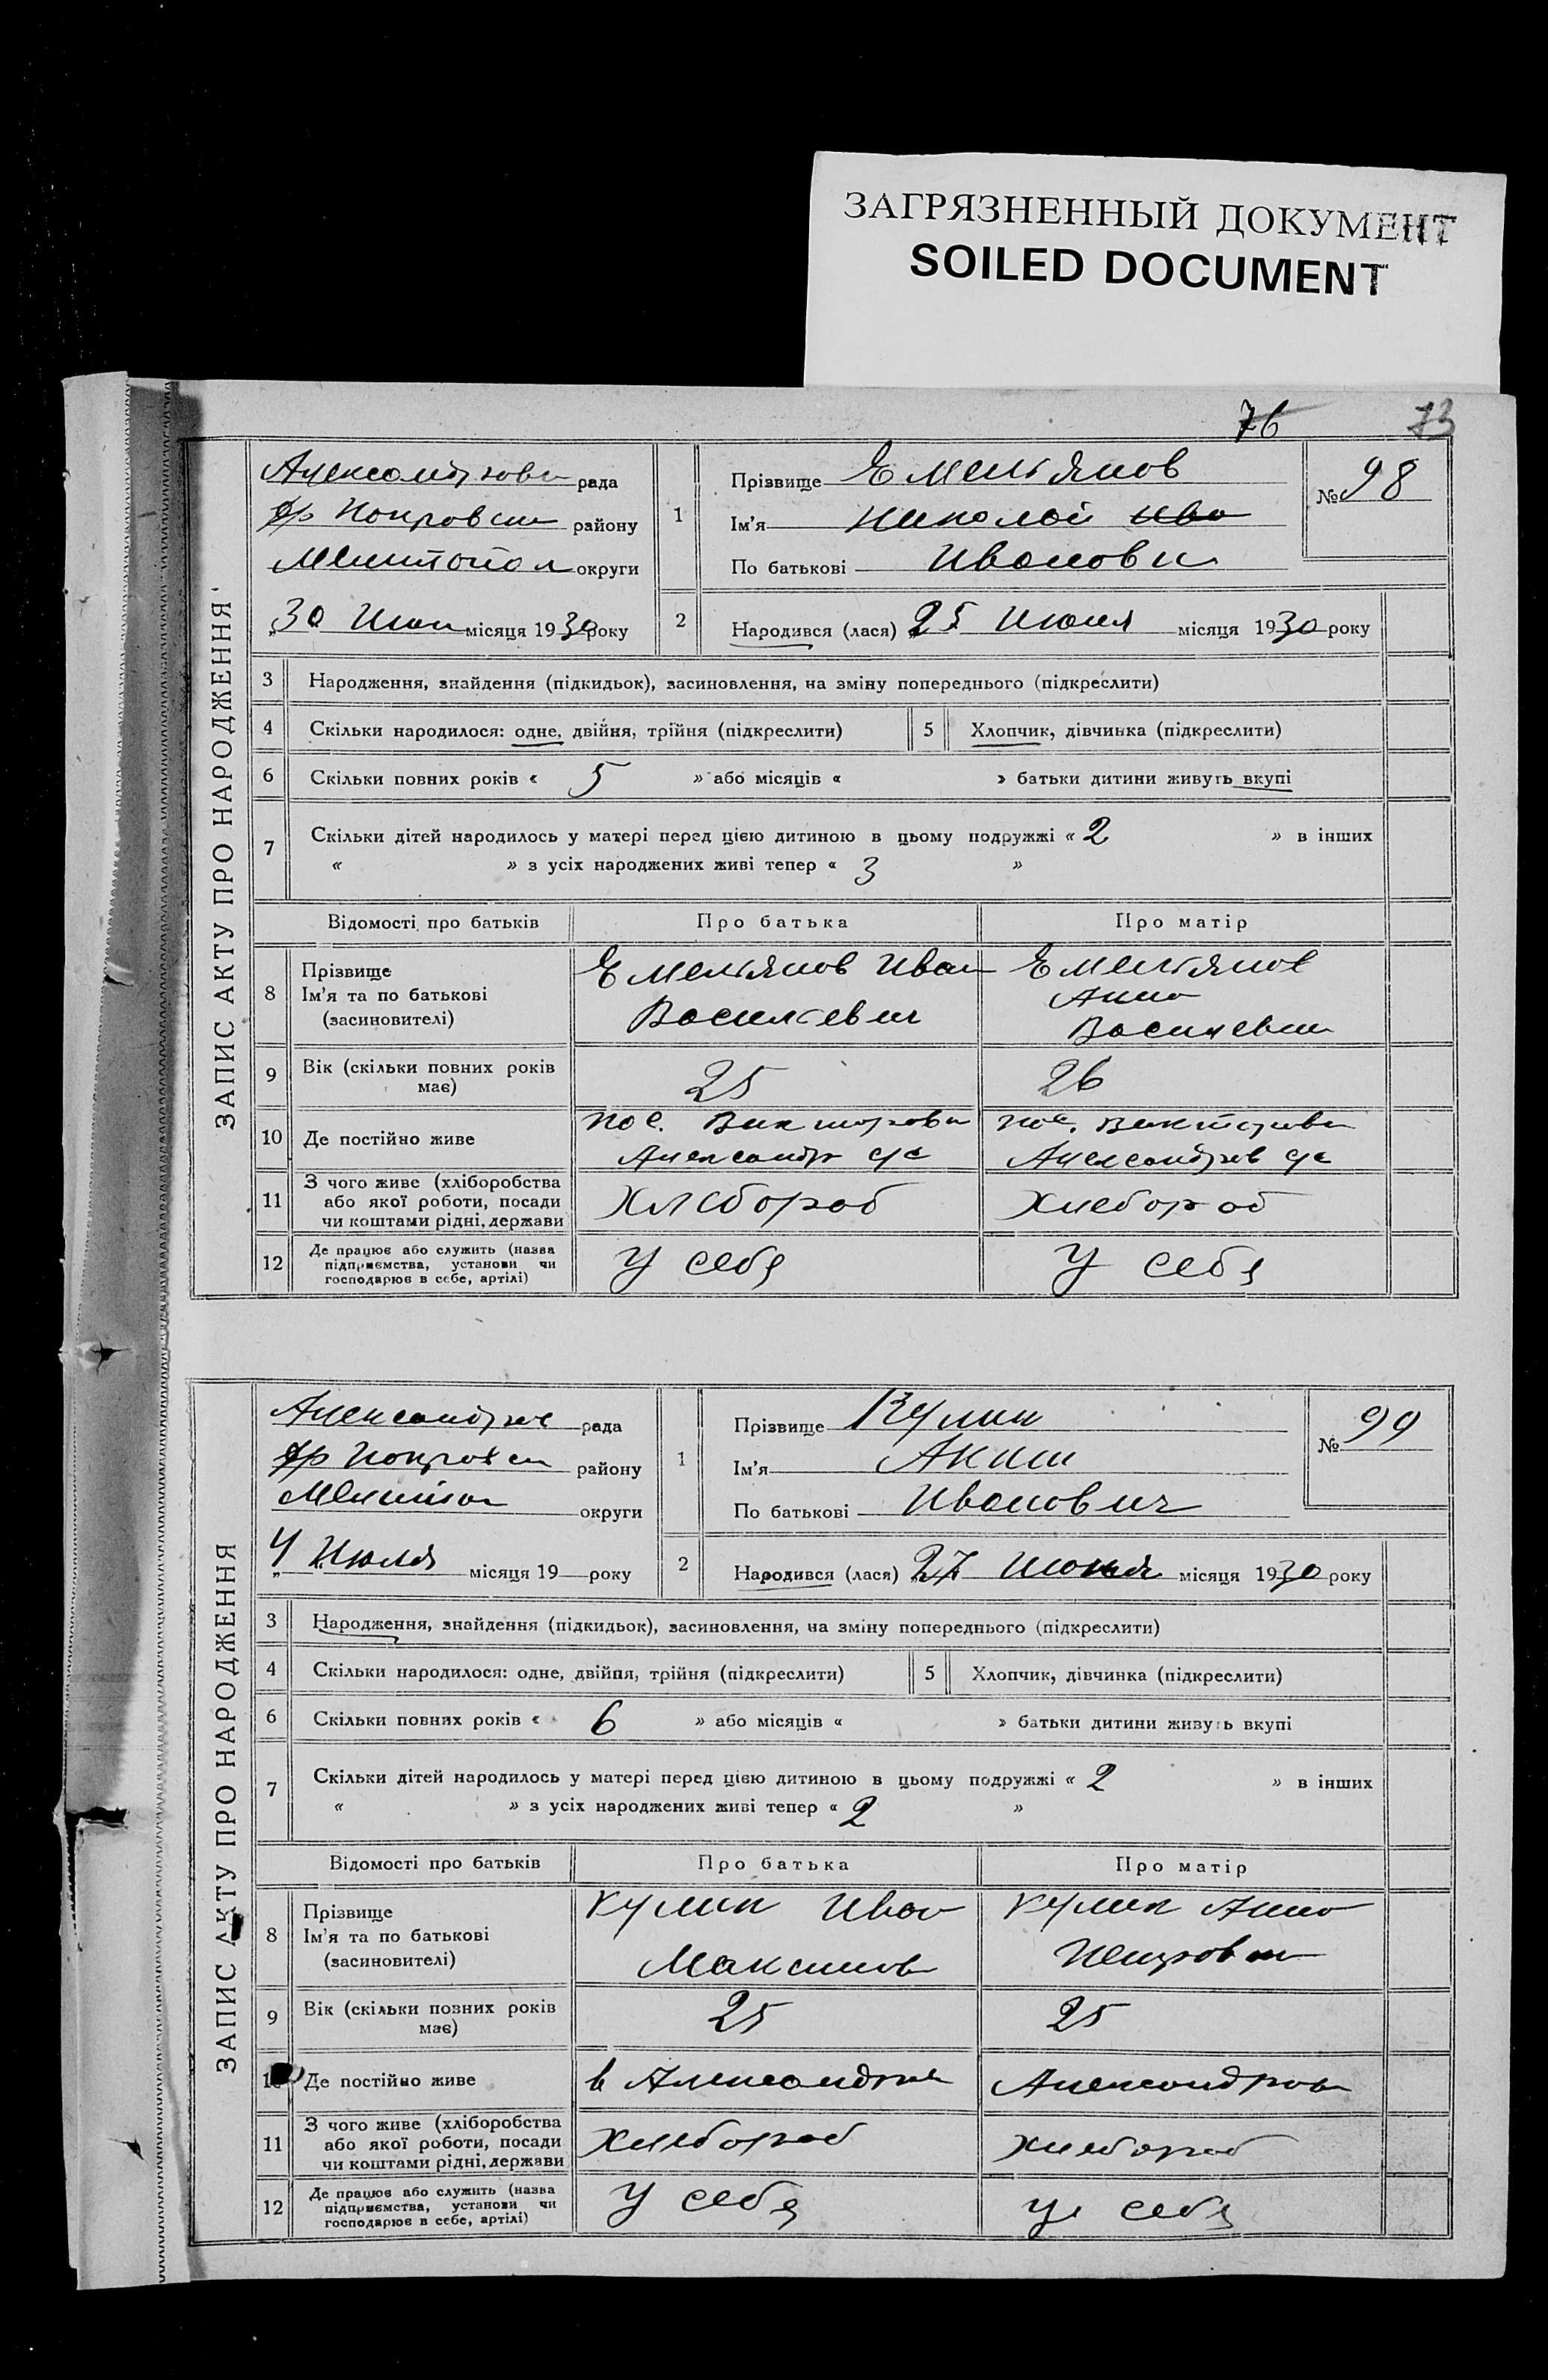 ЗАГРЯЗНЕННЫЙ ДОКУМЕНТ
SOILED DOCUMENT
76 73
ЗАПИС АКТУ ПРО НАРОДЖЕННЯ
Александрови рада
Покровски району
Мелитопол округи
„30 Июн місяця 1930року
1
Прізвище Емельянов
Ім'я Николай Ива
По батькові Иванови
№ 98
2
Народився (лася) „25 Июня місяця 1930 року
3 Народження, знайдення (підкидьок), засиновлення, на зміну попереднього (підкреслити)
4 Скільки народилося: одне, двійня, трійня (підкреслити) 5 Хлопчик, дівчинка (підкреслити)
6 Скільки повних років « 5 » або місяців « » батьки дитини живуть вкупі
7 Скільки дітей народилось у матері перед цією дитиною в цьому подружжі « 2 » в інших
« » з усіх народжених живі тепер « 3 »
Відомості про батьків Про батька Про матір
8 Прізвище
Ім'я та по батькові
(засиновителі)
Емельянов Иван
Василевич
Емельянов
Анна
Василевн
9 Вік (скільки повних років
має)
25 26
10 Де постійно живе
пос. Викторовк
Александр с/с
пос. Викторовк
Александров с/с
11 З чого живе (хліборобства
або якої роботи, посади
чи коштами рідні, держави
Хлебороб Хлебороб
12 Де працює або служить (назва
підприємства, установи чи
господарює в себе, артілі)
У себя У себя
ЗАПИС АКТУ ПРО НАРОДЖЕННЯ
Александров рада
Покровск району
Мелитоп округи
„4 Июля місяця 19 року
1
Прізвище Кулик
Ім'я Аким
По батькові Иванович
№ 99
2
Народився (лася) „27 Июня місяця 1930 року
3 Народження, знайдення (підкидьок), засиновлення, на зміну попереднього (підкреслити)
4 Скільки народилося: одне, двійня, трійня (підкреслити) 5 Хлопчик, дівчинка (підкреслити)
6 Скільки повних років « 6 » або місяців « » батьки дитини живуть вкупі
7 Скільки дітей народилось у матері перед цією дитиною в цьому подружжі « 2 » в інших
« » з усіх народжених живі тепер « 2 »
Відомості про батьків Про батька Про матір
8 Прізвище
Ім'я та по батькові
(засиновителі)
Кулик Иван
Максимов
Кулик Анна
Петровн
9 Вік (скільки повних років
має)
25 25
10 Де постійно живе
в Александров Александров
11 З чого живе (хліборобства
або якої роботи, посади
чи коштами рідні, держави
Хлебороб Хлебороб
12 Де працює або служить (назва
підприємства, установи чи
господарює в себе, артілі)
У себя У себя